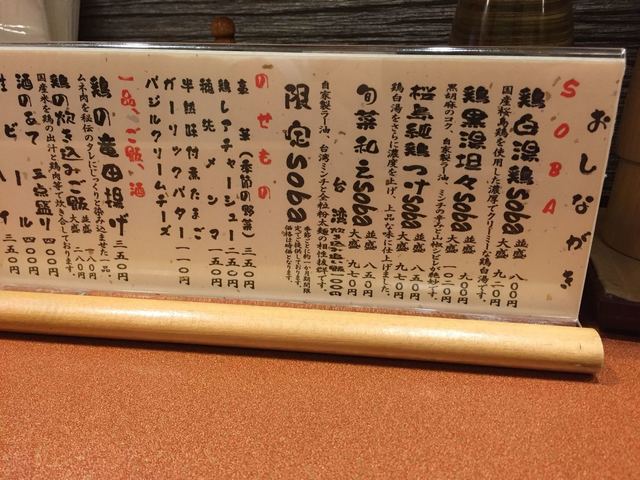 おしながき
SOBA
鶏白湯鶏soba 並盛 八〇〇円
大盛 九二〇円
国産桜島鶏を使用した濃厚でクリーミーな鶏白湯です。
鶏黒湯坦々soba 並盛 九〇〇円
大盛 一〇二〇円
黒胡麻のコク、自家製ラー油、ミンチの辛さと山椒のシビレが絶妙です。
桜島純鶏つけsoba 並盛 八五〇円
大盛 九七〇円
鶏白湯をさらに濃度を上げ、上品な味に仕上げました。
旬菜和えsoba 並盛 八五〇円
大盛 九七〇円
台湾
自家製ラー油、台湾ミンチと全粒粉太麺の相性抜群です。
限定soba
のせもの
(季節の野菜) 三五〇円
鶏レアチャーシュー 二五〇円
穂先メンマ 一五〇円
半熟味付煮たまご
ガーリックバター 一一〇円
バジルクリームチーズ
一品、ご飯、酒
鶏の竜田揚げ 三五〇円
ムネ肉を秘伝のタレにじっくりと染み込ませた一品。
鶏の炊き込みご飯 並盛 一八〇円
大盛 二八〇円
国産米を鶏の出汁と鶏肉等で炊き合ております。
酒のあて 三点盛り 四〇〇円
生ビール 四〇〇円
ハイ 三五〇円